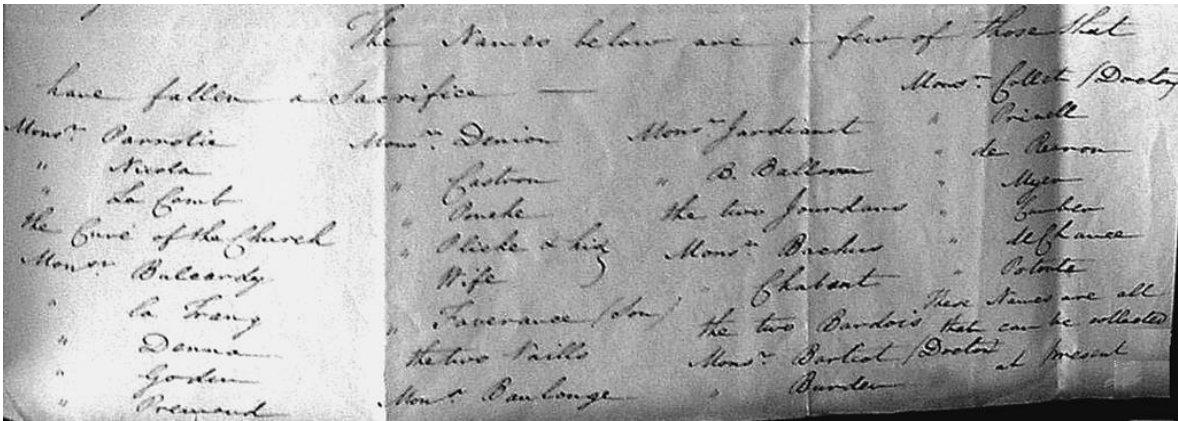 The Names below are a few of those that
have fallen a Sacrifice —
Monsr. Parrotie
" Nicola
" La Comb
the Curé of the Church
Monsr Buleardy
" la Frang
" Denma
" Godin
" Premond
Monsr. Denion
" Castron
" Pouche
" Plicke & his
Wife
" Faverance (Son)
the two Naills
Monsr. Baulonge
Monsr Jardianet
" B. Balloon
the two Jourdans
Monsr. Bachus
" Chabant
the two Bardois
Monsr. Barliot (Doctor
" Burden
Monsr. Collet (Doctor
" Prinell
" de Reenon
" Myer
" Comber
" de Chance
" Potonte
These Names are all
that can be collected
at present